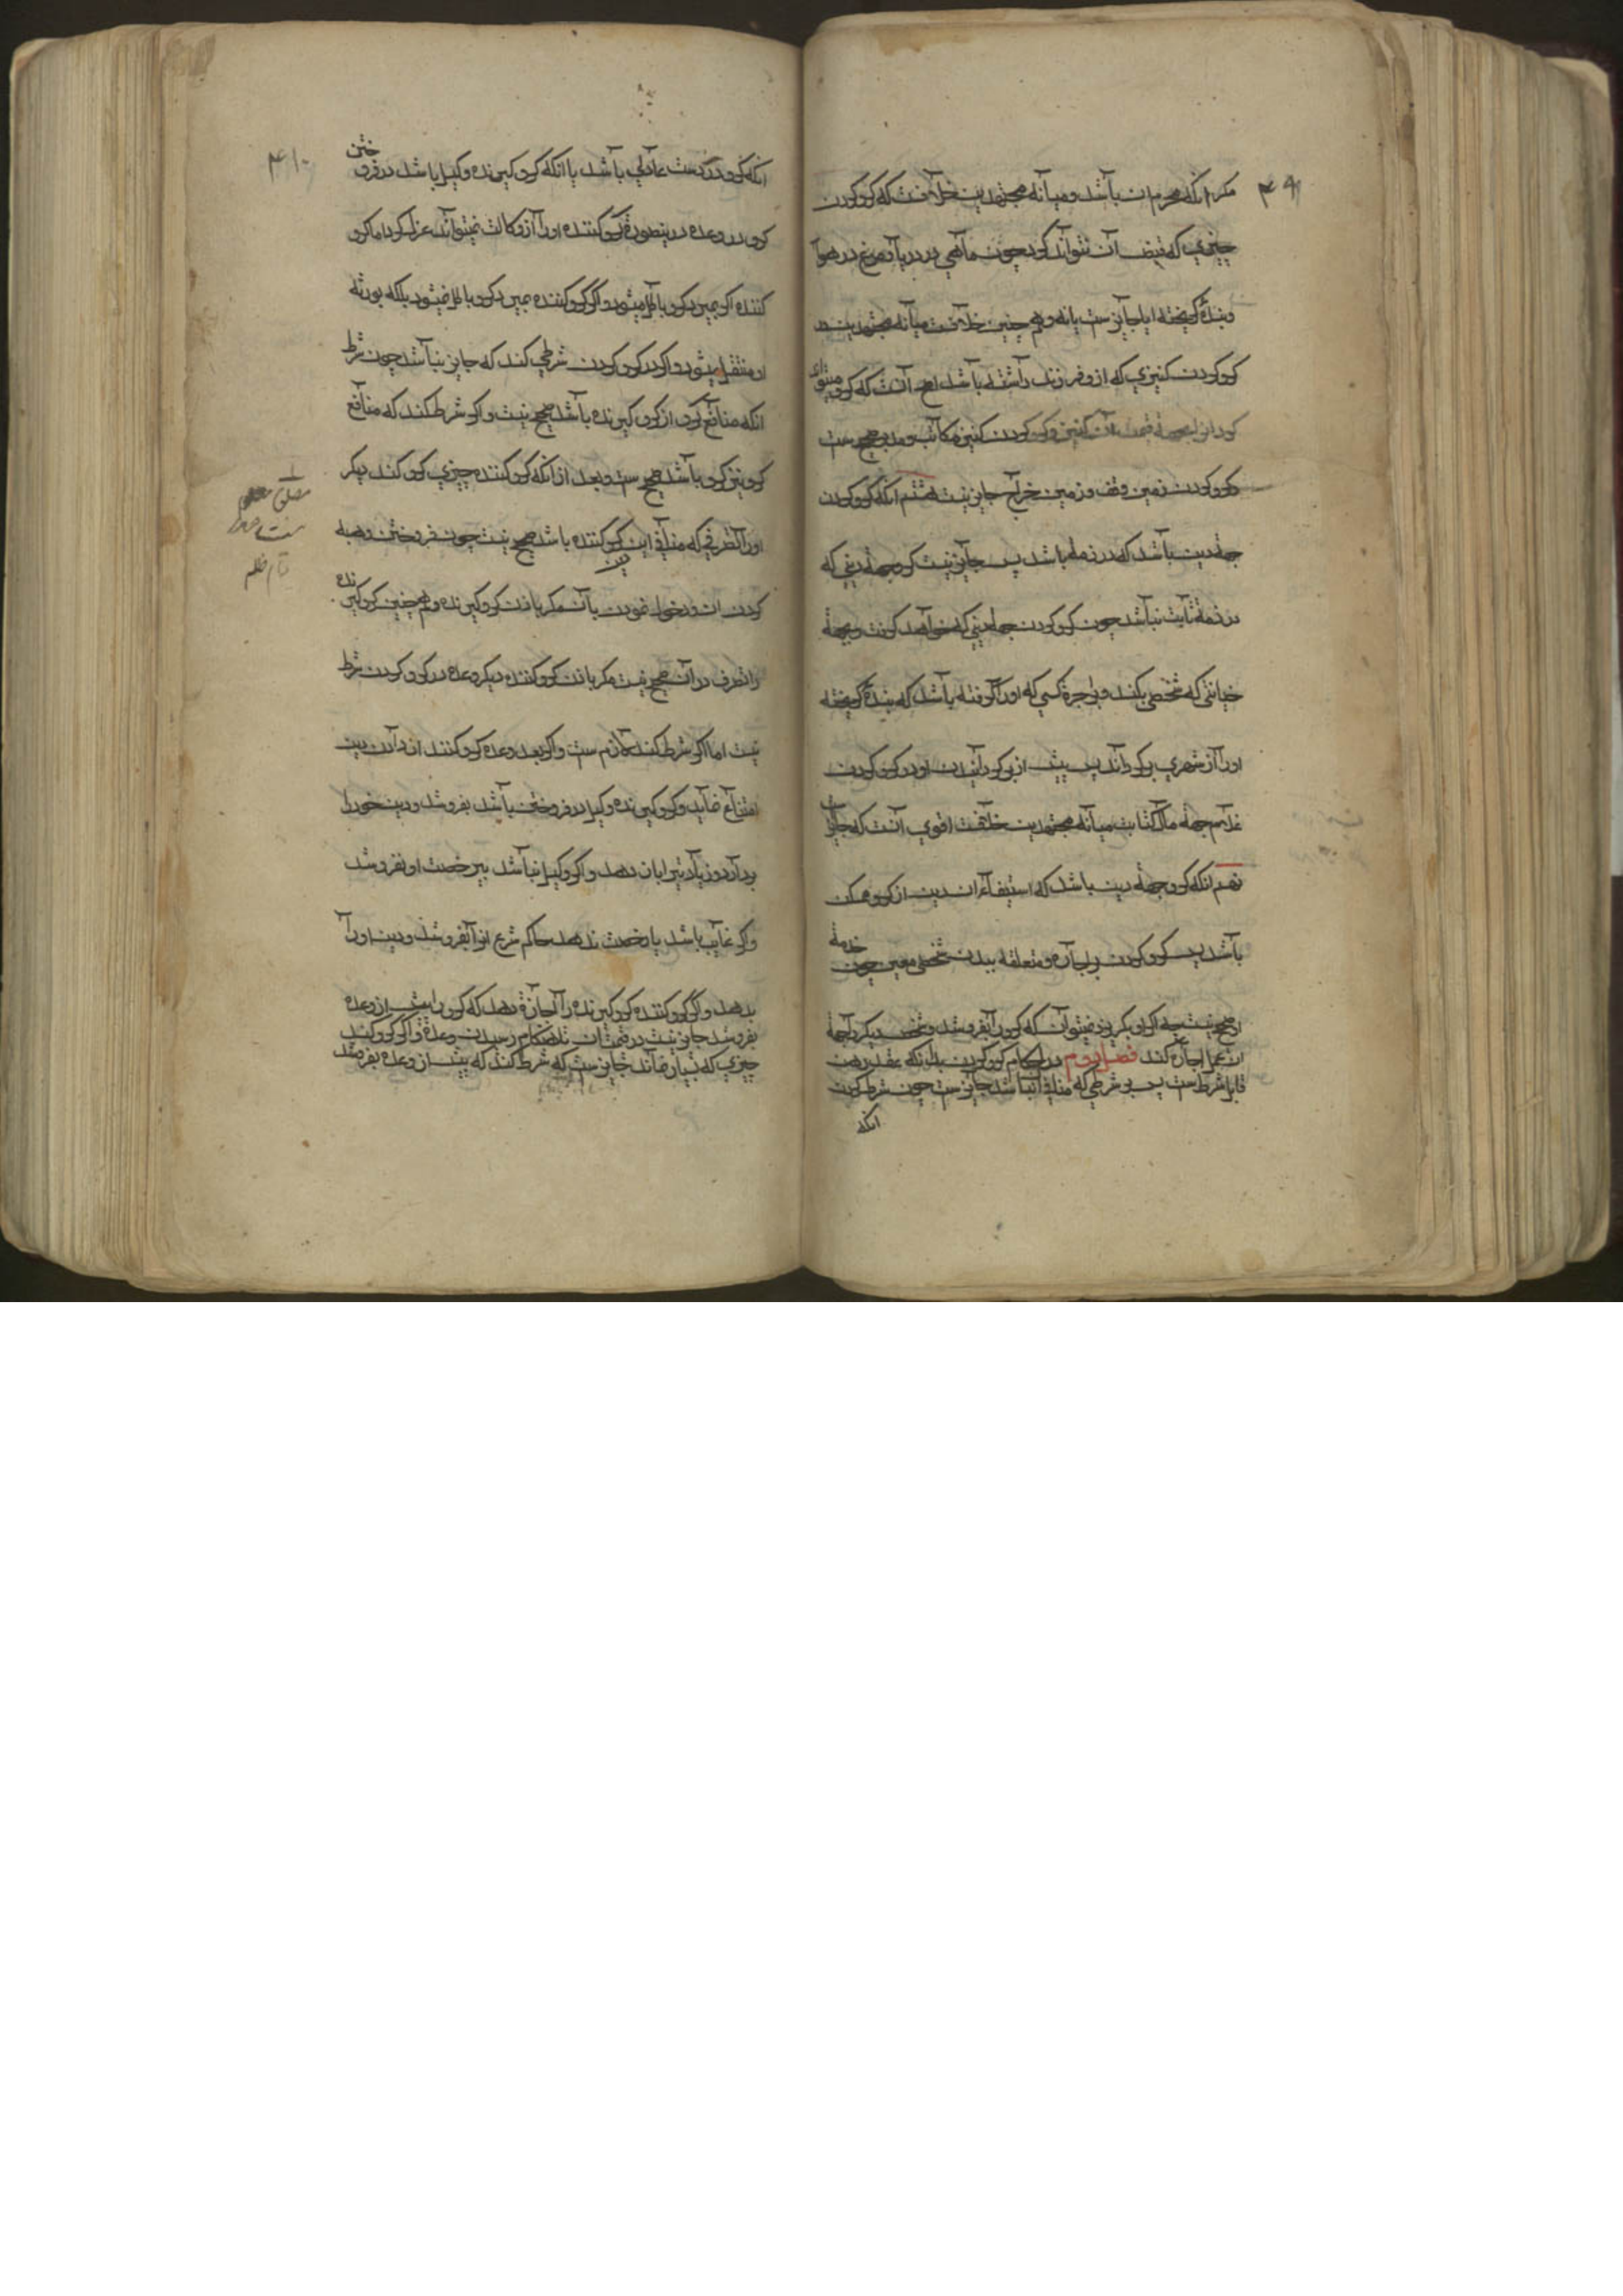 ۴۰۹
مکر انکه محرم ان باشد و میانه مجتهدین خلافست که کرو کردن
چیزی که قبض آن نتواند کرد چون ماهی در دریا و مرغ در هوا
و بنده کریخته ایا جایز ست یا نه و هم چنین خلافست میانه مجتهدین در
کرو کردن کنیزی که ازو فرزند داشته باشد اصح آنست که کرو میتواند
کرد از برای قیمت آن کنیز و کرو کردن کنیز مکاتب و مدبر صحیح ست
و کرو کردن زمین وقف و زمین خراج جایز نیست هشتم انکه کرو کردن
بجهة دین باشد که در ذمه باشد پس جایز نیست کرو بجهة دینی که
در ذمه ثابت نباشد چون کرو کردن بجهة دینی که خواهد کرفت و بجهة
خیانتی که شخصی بکند و باجرة کسی که او را کرفته باشد که بنده کریخته
او را از شهری برکرداند پس پیش از برکردانیدن او در کرو کردن
غلام بجهة مال کتابت میانه مجتهدین خلافست اقوی آنست که جایز
نهم انکه کرو بجهة دین باشد که استیفاء ان دین از کرو ممکن
باشد پس کرو کردن بر اجاره متعلقه ببدن شخصی معین چون خدمة
او صحیح نیست چه اکر او بکریزد نمیتوان که کرو را بفروشد و شخصی دیکر را بجهة
ان عمل اجاره کند فصل دوم در احکام کرو کردن بدانکه عقد رهن
قابل شرط ست پس هر شرطی که منافی ان نباشد جایز ست چون شرط کردن
انکه
۴۱۰
انکه کرو در دست عادلی باشد یا انکه کرو کیرنده وکیل باشد در فروختن
کرو در وعده درینصورة کرو کننده او را از وکالت نمیتواند عزل کرد اما کرو
کننده اکر بمیرد کرو باطل میشود و اکر کرو کننده بمیرد کرو باطل نمیشود بلکه بورثه
او منتقل میشود و اکر در کرو کردن شرطی کند که جایز نباشد چون شرط
انکه منافع کرو از کرو کیرنده باشد صحیح نیست و اکر شرط کند که منافع
کرو نیز کرو باشد صحیح ست و بعد از انکه کرو کننده چیزی کرو کند دیکر
او را تصرفی که منافی این کرو کننده باشد صحیح نیست چون فروختن و هبه
کردن ان و دخول نمودن بآن مکر باذن کرو کیرنده و هم چنین کرو کیرنده
را تصرف در آن صحیح نیست مکر باذن کرو کننده دیکر وعده در کرو کردن شرط
نیست اما اکر شرط کند لازم ست و اکر بعد وعده کرو کننده از دادن دین
امتناع نماید و کرو کیرنده وکیل در فروختن باشد بفروشد و دین خود را
بردارد و زیادتی را بان دهد و اکر وکیل نباشد بیرخصت او نفروشد
و اکر غایب باشد یا رخصت ندهد حاکم شرع انرا بفروشد و دین او را
بدهد و اکر کرو کننده کرو کیرنده را اجازة دهد که کرو را پیش از وعده
بفروشد جایز نیست در قیمت ان تا هنکام رسیدن وعده و اکر کرو کند
چیزی که بسیار نماند جایز ست که شرط کند که پیش از وعده بفروشد